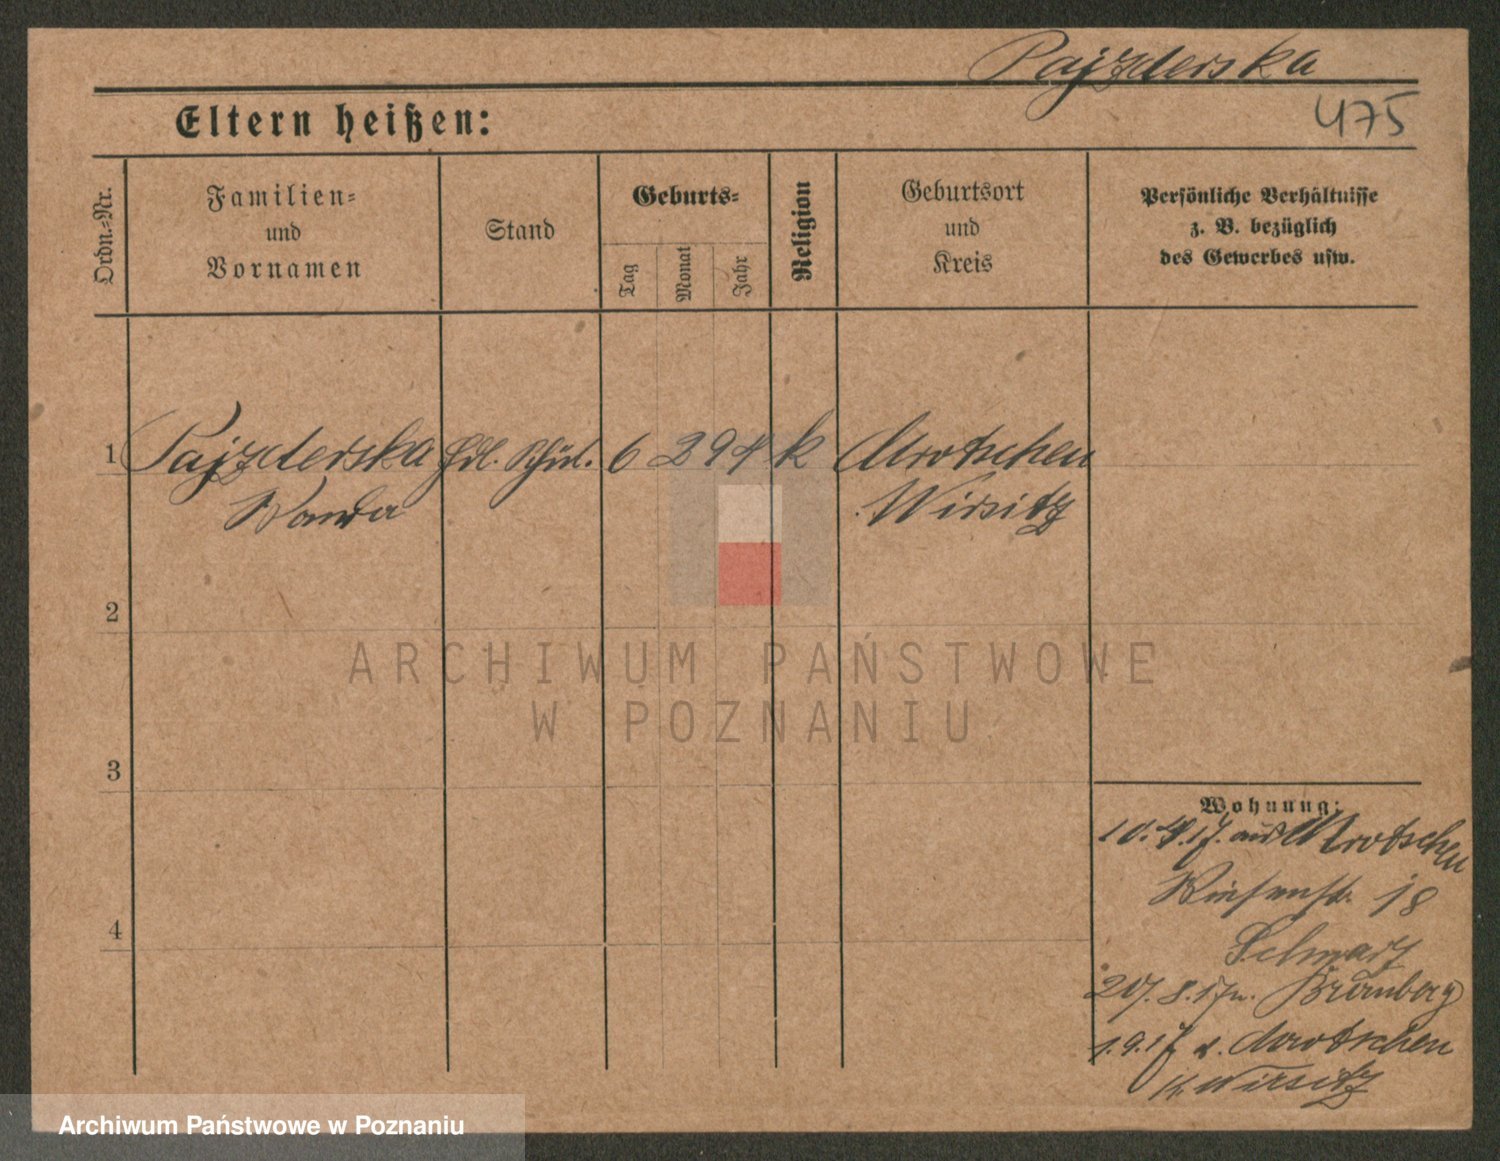 Pajzderska
475
Eltern heißen:
Ordn.-Nr.
Familien-
und
Vornamen
Stand
Geburts-
Tag
Monat
Jahr
Religion
Geburtsort
und
Kreis
Persönliche Verhältnisse
z. B. bezüglich
des Gewerbes usw.
1 Pajzderska Hdl. Schül. 6 2 94 k Mrotschen
Wanda Wirsitz
2
3
4
Wohnung:
10.4.17. aus Mrotschen
Wiesenstr. 18
Schwarz
27.8.17 n. Bromberg
1.9.17 v. Mrotschen
K. Wirsitz
ARCHIWUM PAŃSTWOWE
W POZNANIU
Archiwum Państwowe w Poznaniu